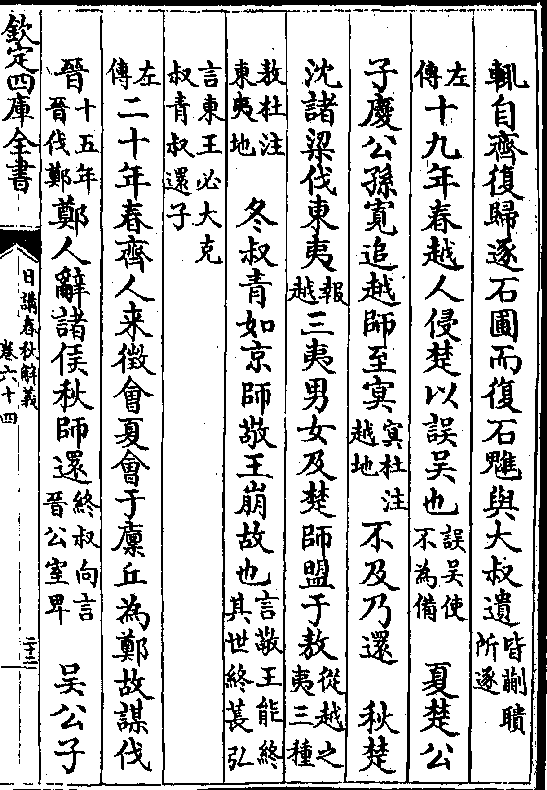 輒自齊復歸逐石圃而復石魋與大叔遺皆蒯聵所逐
左傳十九年春越人侵楚以誤吳也誤吳使不為備　夏楚公
子慶公孫寛追越師至冥冥杜注越地不及乃還　秋楚
沈諸梁伐東夷報越三夷男女及楚師盟于敖從越之夷三種
敖杜注東夷地　冬叔青如京師敬王崩故也言敬王能終其世終萇弘
言東王必大克叔青叔還子
左傳二十年春齊人来徵會夏會于廩丘為鄭故謀伐
晉十五年晉伐鄭鄭人辭諸侯秋師還終叔向言晉公室卑　吳公子
欽定四庫全書
日講春秋解義
卷六十四